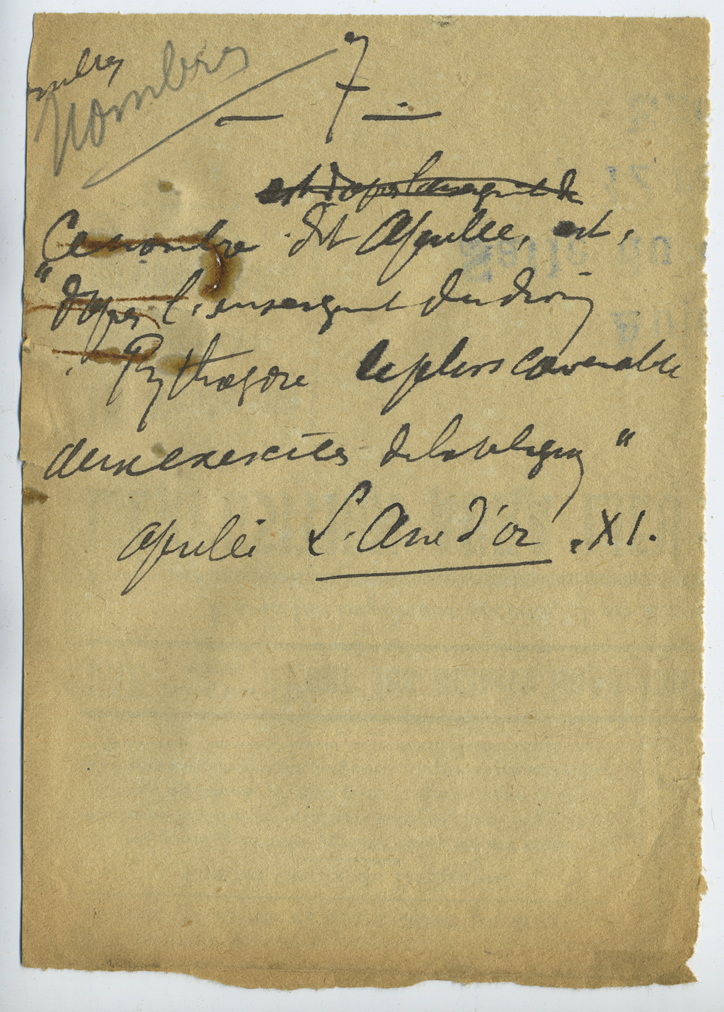 nombres
Nombres
— 7 —
est d'après l'enseignt de
Ce nombre dit Apulée, est,
"d'après l'enseignt du divin
Pythagore le plus convenable
aux exercices de la religion"
Apulée L'Ane d'or. XI.